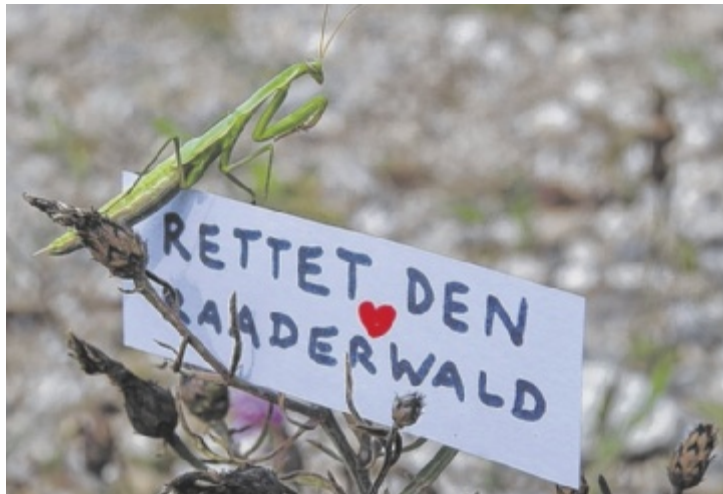 RETTET DEN
RAADERWALD